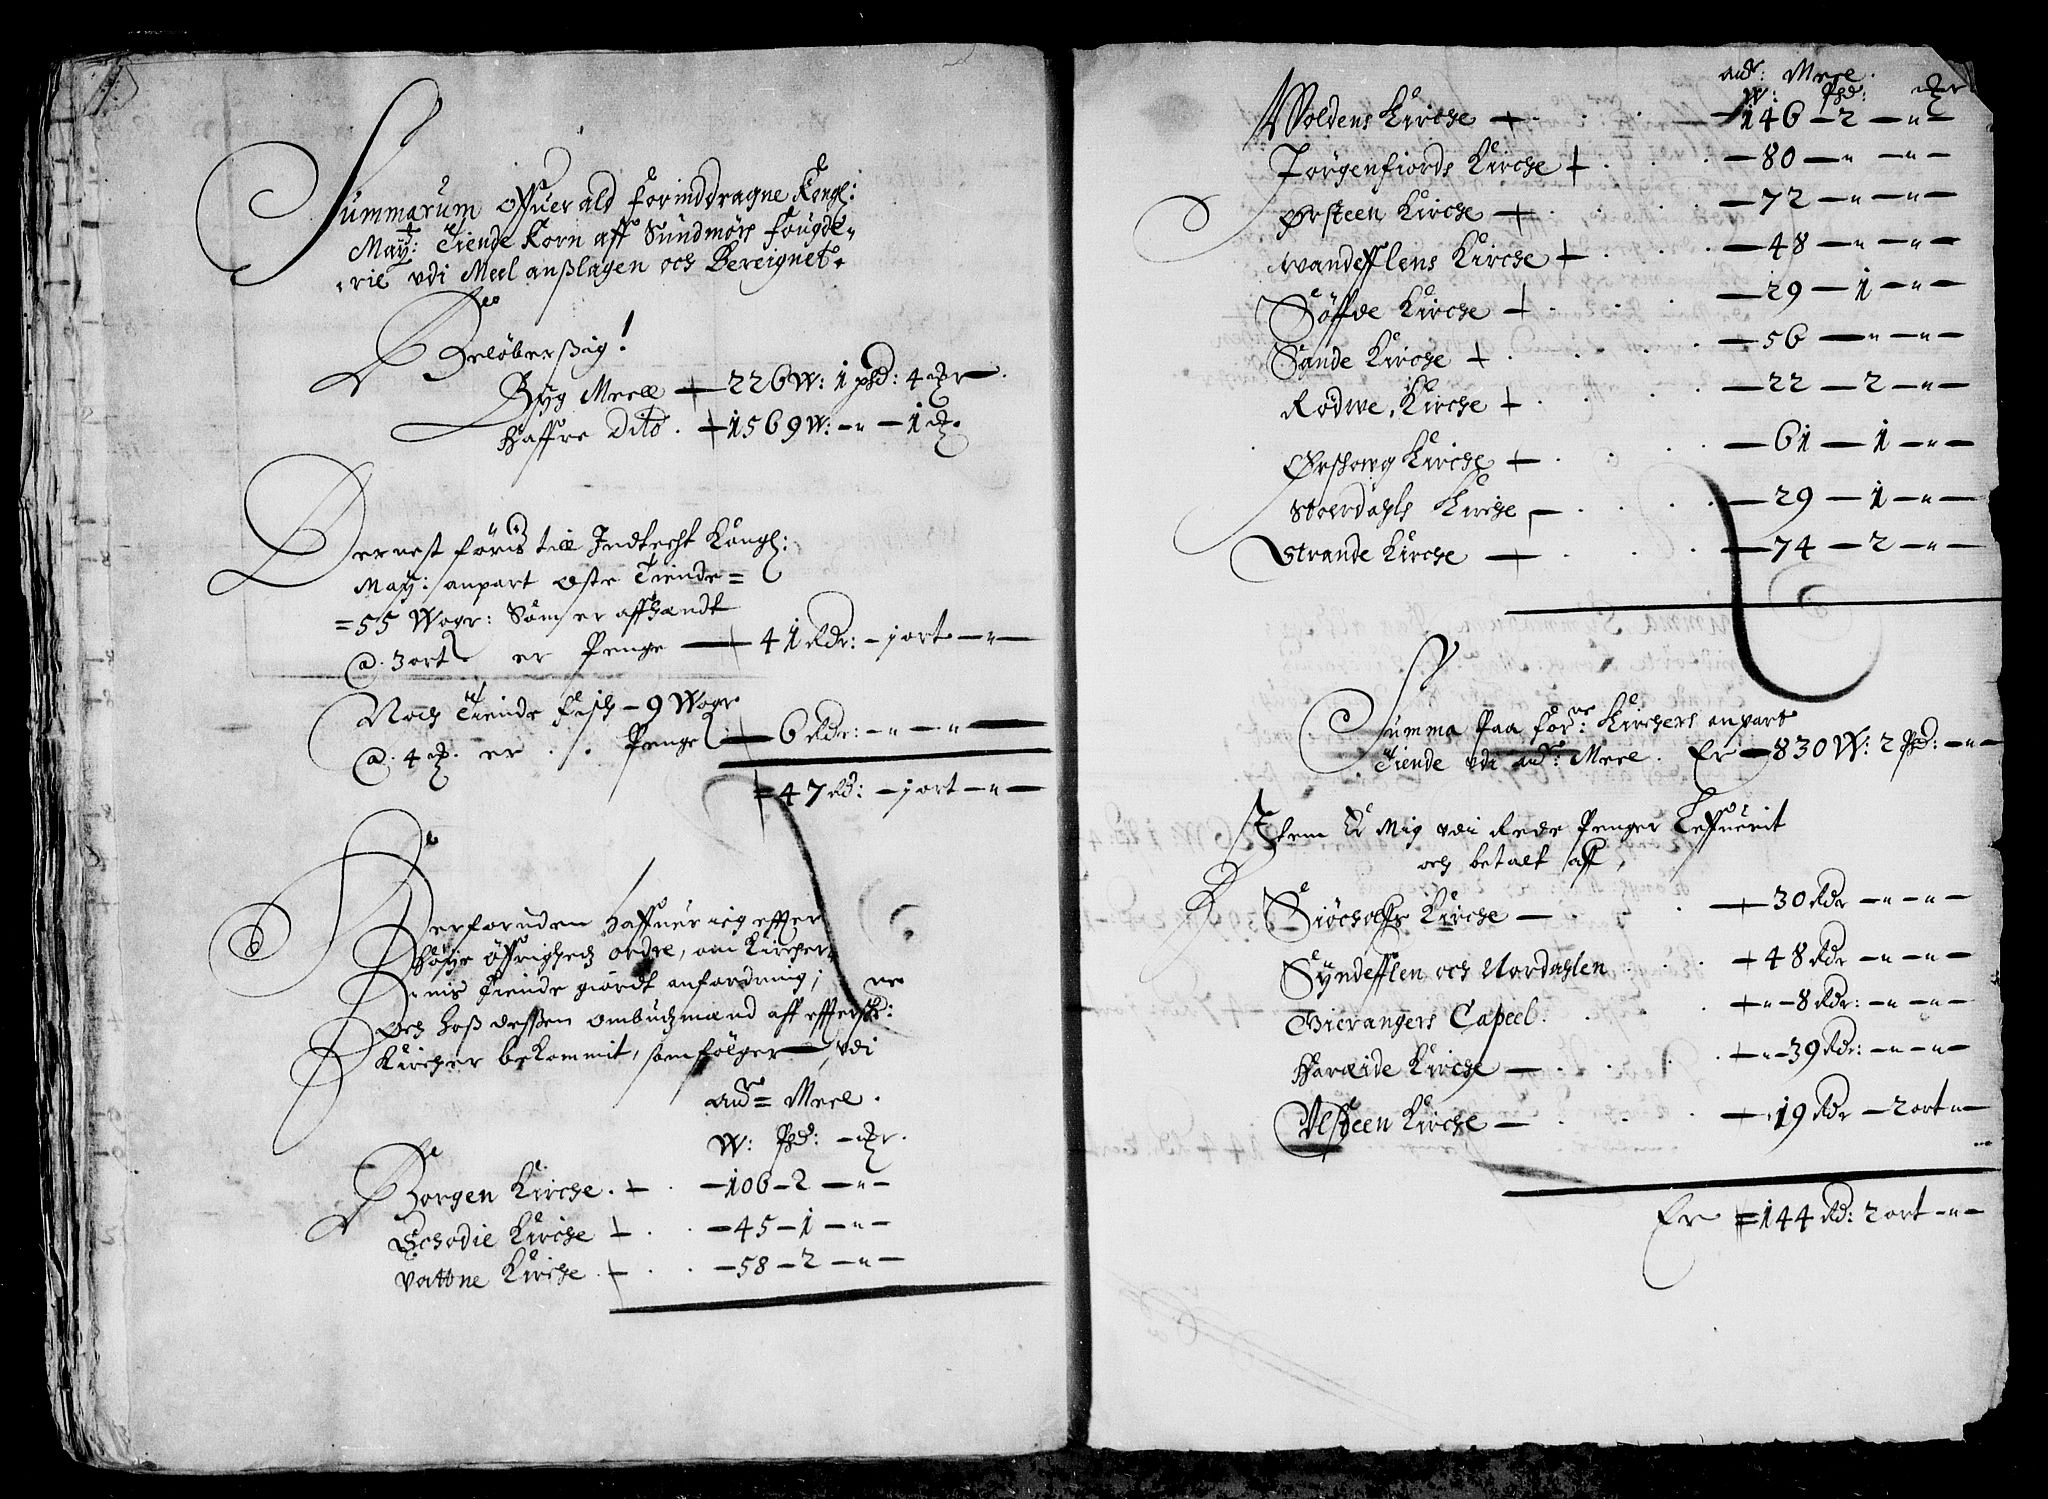 Summarum offuer ald forinddragne Kongl:
May: Tiende Korn aff Sundmørs fougde-
-rie vdi Meel anßlagen och Bereignet.
Beløberßig!
Byg Meell 226 W: 1 phd: 4
Haffre Dito. 1569 W: - " - 1
Dernest føris till Indtecht Kongl:
May: anpart Oste Tiende =
= 55 Wogr: Som er affhændt
a. 3 ort er Penge 41 Rdr: - 1 ort - " -
Noch Tiende fisch - 9 Wogr
a. 4 er . . Penge 6 Rdr: - " - " -
= 47 Rd: - 1 ort - " -
Derforuden haffuer ieg effter
høye øffrigheds ordre, om Kircher-
-nis Tiende giordt anfordring;
Och hoß dessen ombudzmænd aff effterskr: ne
Kircher bekommit, som følger, vdi
and= Meel.
W: Phd:
Borgen Kirche. - 106 - 2 - " -
Schodie Kirche - 45 - 1 - " -
Vattne Kirche - 58 - 2 - " -
and: Meel.
W: Phd:
Woldens Kirche 146 - 2 - " -
Jørgenfiords Kirche - 80 - " - " -
Ørsteen Kirche - 72 - " - " -
Wandefflens Kirche - 48 - " - " -
Søffde Kirche - 29 - 1 - " -
Sande Kirche - 56 - " - " -
Rødwe Kirche - 22 - 2 - " -
Ørschowg Kirche - 61 - 1 - " -
Stoerdahls Kirche - 29 - 1 - " -
Strande Kirche - 74 - 2 - " -
Summa Paa for: ne Kirchers anpart
Tiende vdi and: Meel. Er - 830 W: 2 Phd: - " -
Item Er Mig vdi Rede Penger Leffuerit
och betalt aff,
Siøcholffs Kirche 30 Rdr - " - " -
Syndefflen och Nordahlen 48 Rdr - " - " -
Gierangers Capeel. " - 8 Rdr: - " - " -
Hareide Kirche " - 39 Rdr: - " - " -
Vlsteen Kirche 19 Rdr - 2 ort " -
Er = 144 Rd: 2 ort - " -